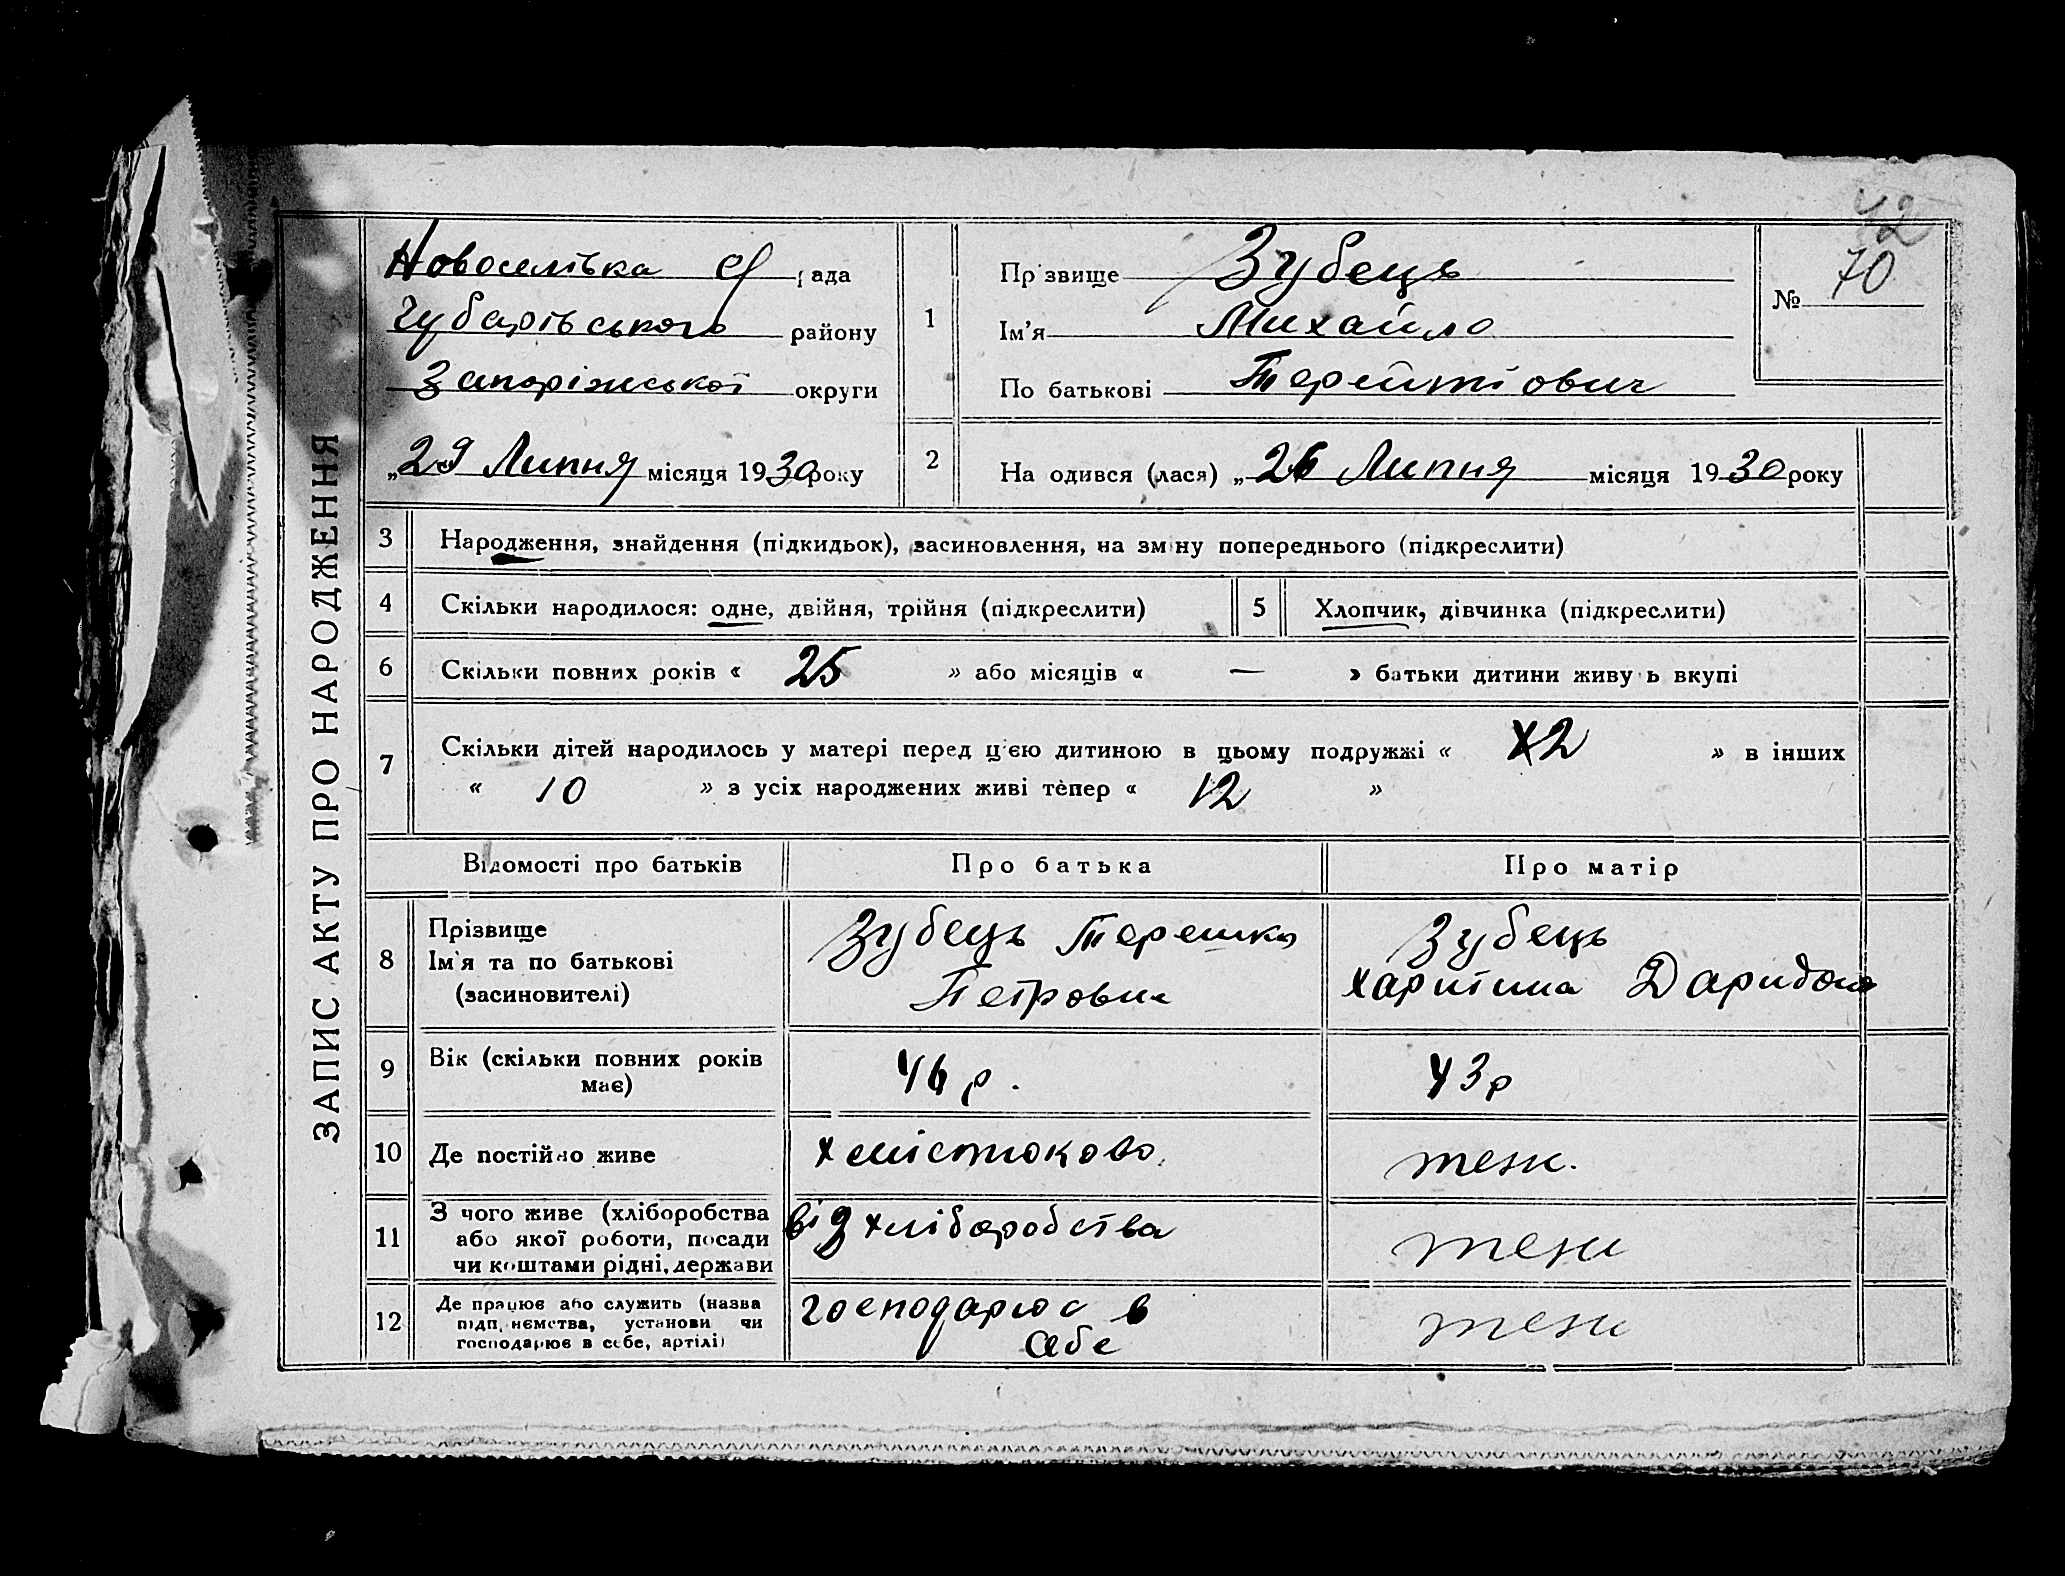 42
ЗАПИС АКТУ ПРО НАРОДЖЕННЯ
Новоселівка рада
Губарівського району
Запоріжської округи
„29 Липня місяця 1930 року
1
Прізвище Зубець
Ім'я Михайло
По батькові
№ 70
2 На одився (лася) „26 Липня місяця 1930 року
3 Народження, знайдення (підкидьок), засиновлення, на зміну попереднього (підкреслити)
4 Скільки народилося: одне, двійня, трійня (підкреслити)
5 Хлопчик, дівчинка (підкреслити)
6 Скільки повних років « 25 » або місяців « — » батьки дитини живуть вкупі
7 Скільки дітей народилось у матері перед цією дитиною в цьому подружжі « 12 » в інших
« 10 » з усіх народжених живі тепер « 12 »
Відомості про батьків Про батька Про матір
8 Прізвище
Ім'я та по батькові
(засиновителі)
Зубець Терешко
Петрович
Зубець
Харитина
9 Вік (скільки повних років
має)
46 р.
43 р
10 Де постійно живе
теж.
11 З чого живе (хліборобства
або якої роботи, посади
чи коштами рідні, держави
від хліборобства
теж
12 Де працює або служить (назва
підп, немства, установи чи
господарює в себе, артілі)
господарює в
себе
теж